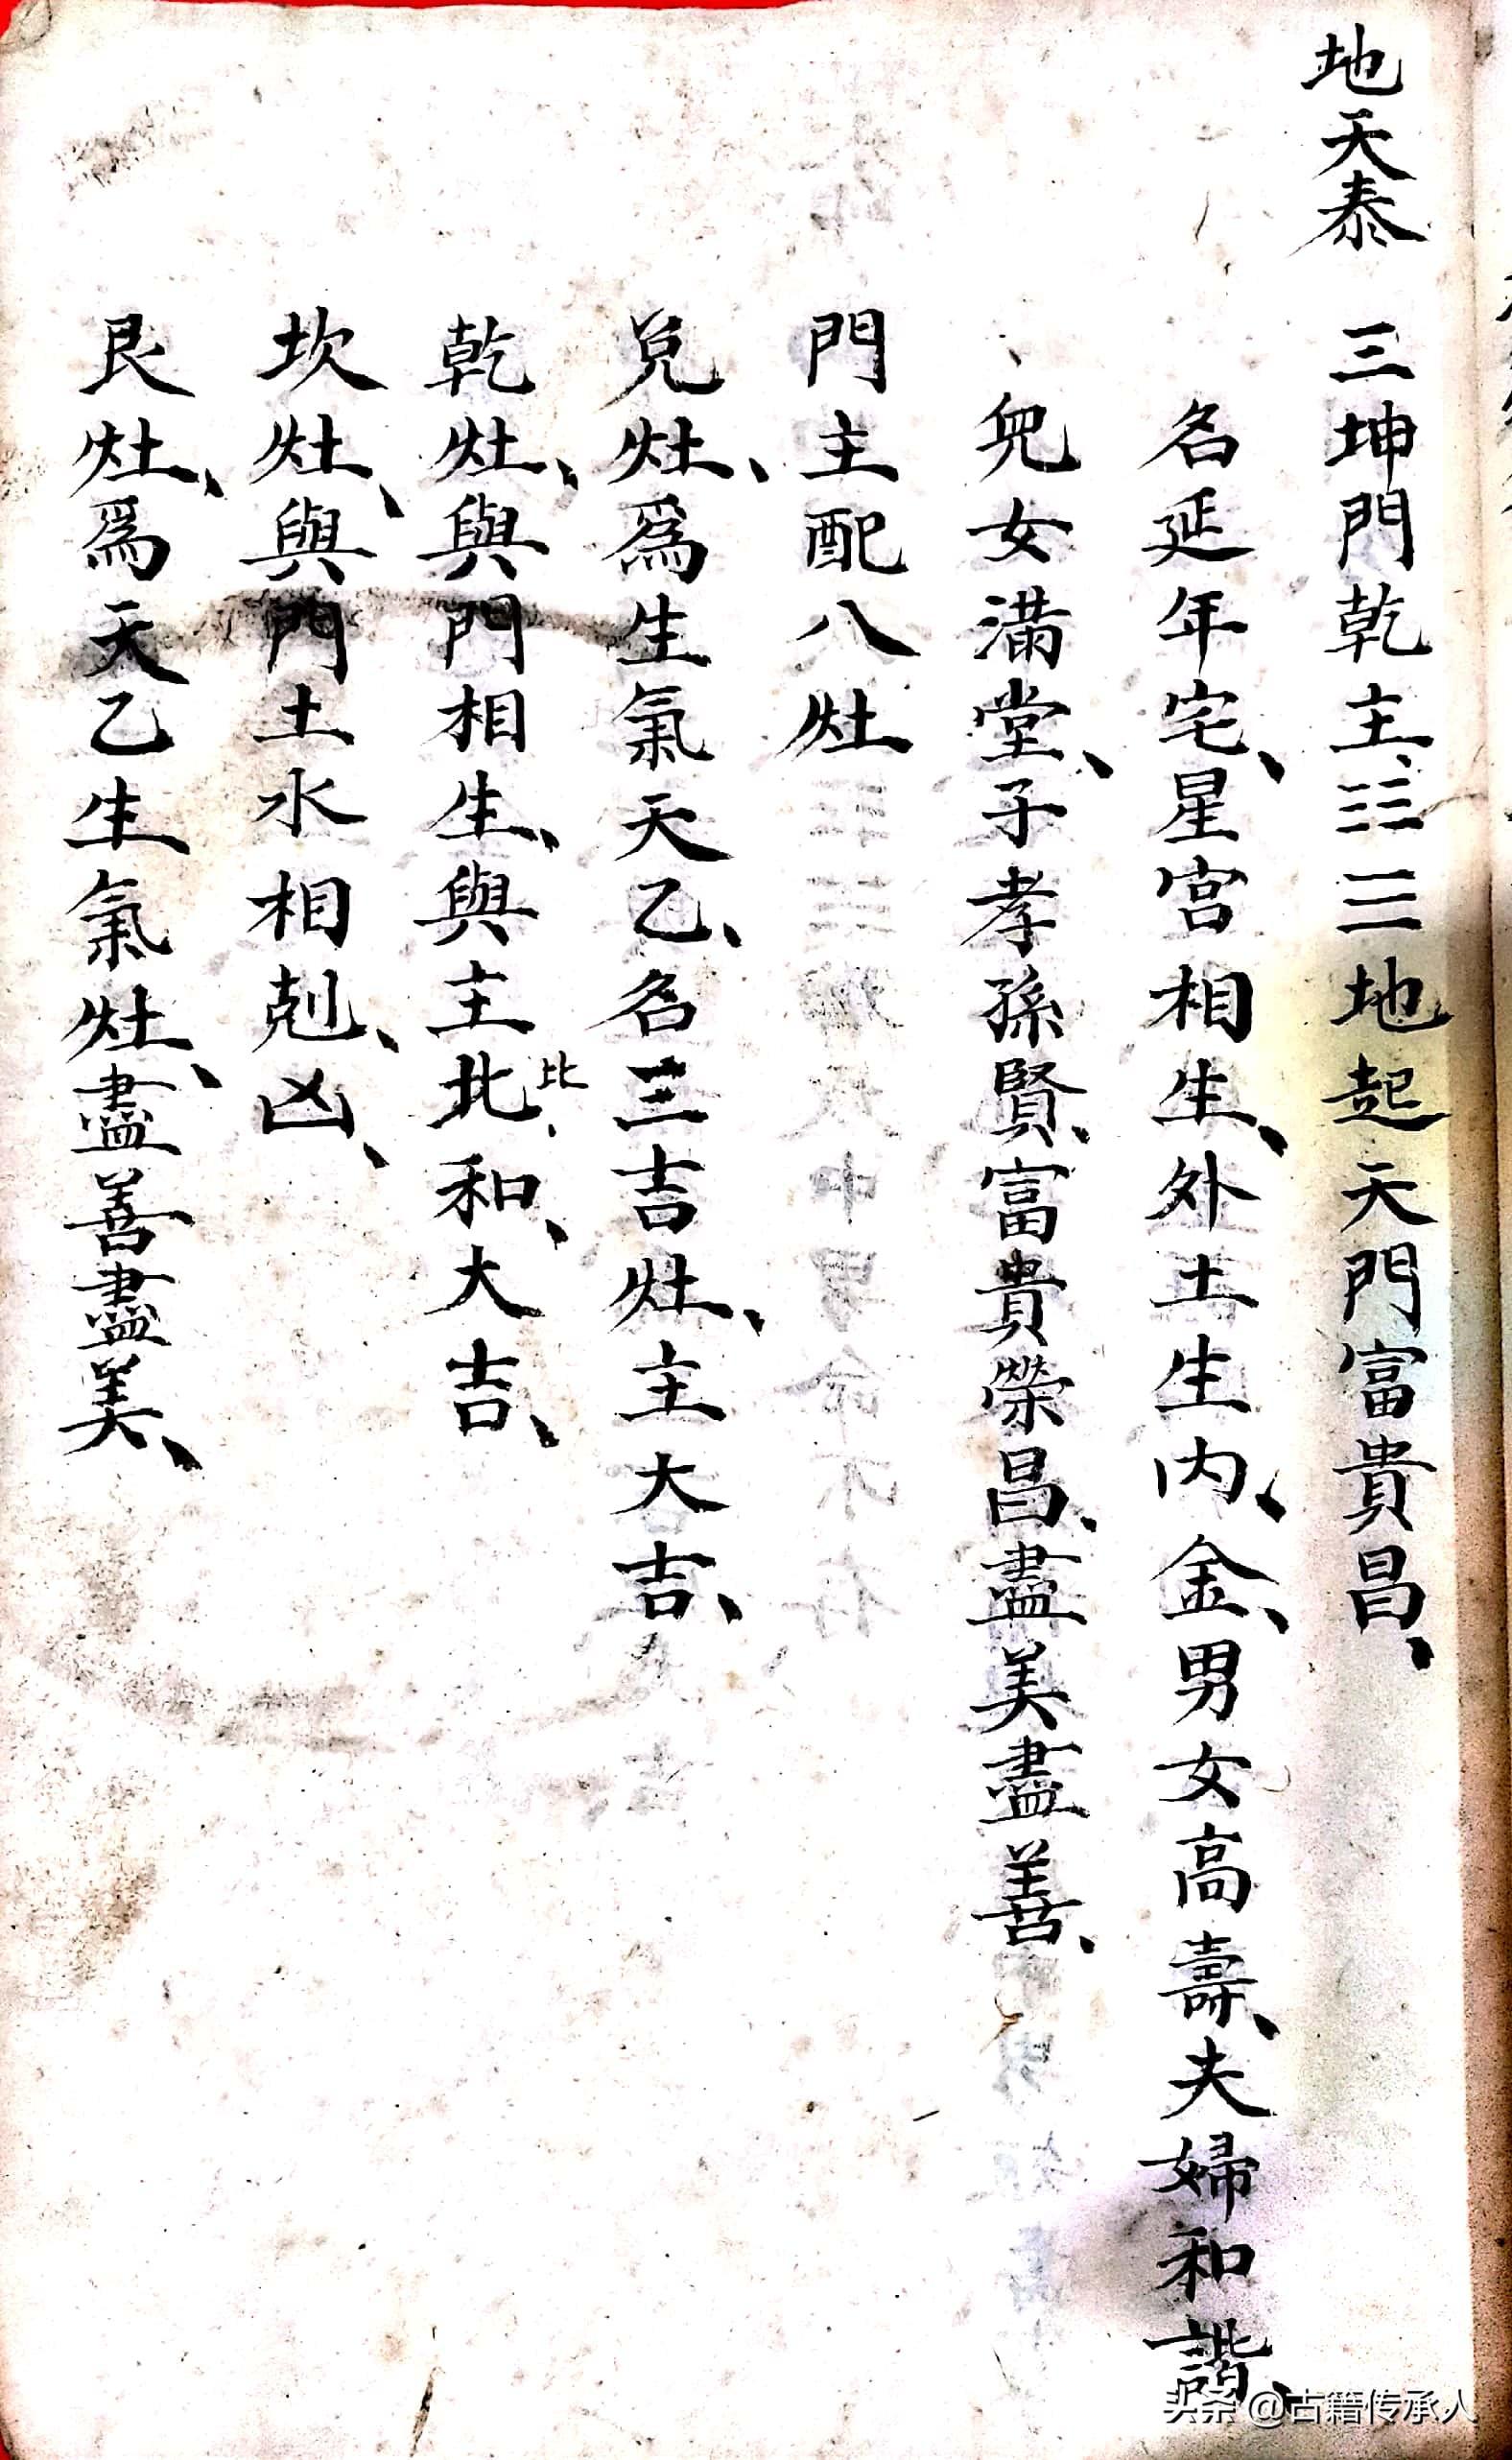 地天泰 三坤門乾主、☷☰地起天門富貴昌、
名延年宅、星宮相生、外土生内、金、男女高壽、夫婦和諧、
兒女满堂、子孝孫賢、富貴榮昌、盡美盡善、
門主配八灶
兑灶、為生氣天乙、名三吉灶、主大吉、
乾灶、與門相生、與主北比和、大吉、
坎灶、與門土水相剋、凶、
艮灶、為天乙生氣灶、盡善盡美、
头条 @古籍传承人